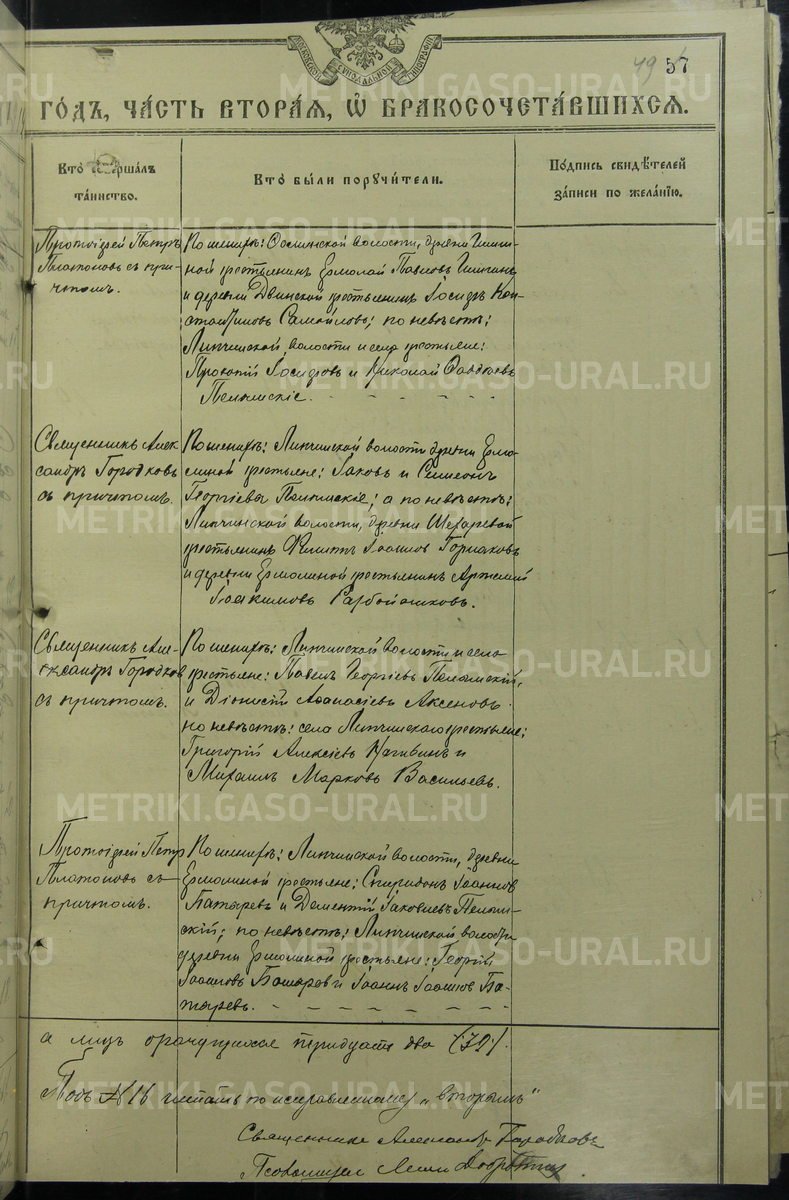 49 57
ГОДЪ, ЧАСТЬ ВТОРАЯ, Ѿ БРАКОСОЧЕТАВШИХСЯ.
Кто совершалъ
таинство.
Кто были поручители.
Подпись свидѣтелей
записи по желанію.
Протоіерей Петръ
Платоновъ съ при-
чтомъ.
По женихѣ: волости, дрвни
ной крестьянинъ Ермолай Павловъ
и деревни Двинской крестьянинъ Іосифъ Кон-
стантиновъ Самойловъ; по невѣстѣ:
Липчинской волости и села крестьяне:
Прокопій Іосифовъ и Николай Савваевъ
Пелымскіе.
Священникъ Алек
сандръ Городковъ
съ причтомъ.
По женихѣ: Липчинской волости дрвни Ермо-
линой крестьяне: Іаковъ и Симеонъ
Георгіевы Пелымскіе; а по невѣстѣ:
Липчинской волости, дрвни
крестьянинъ Филиппъ Іоанновъ
и деревни Ермолиной крестьянинъ Артемій
Іоакимовъ Разбойниковъ.
Священникъ Але-
ксандръ Городков
съ причтомъ.
По женихѣ: Липчинской волости и села
крестьяне: Павелъ Георгіевъ Пелымскій,
и Діонисій Аѳанасіевъ Аксеновъ.
по невѣстѣ: села Липчинскаго крестьяне:
Григорій Алексіевъ Нагибинъ и
Михаилъ Марковъ Васильевъ.
Протоіерей Петр
Платоновъ съ
причтомъ.
По женихѣ: Липчинской волости, дрвни
Ермолиной крестьяне: Спиридонъ Іоаннов
Патаревъ и Дементій Іаковлевъ Пелым-
скій; по невѣстѣ: Липчинской волости
деревни Ермолиной крестьяне: Георгій
Іоанновъ и Іоаннъ Іоаннов Па-
таревъ.
а лицъ тридцать два (32).
Подъ № 16 читать по исправленному „вторымъ"
Священникъ Александръ Городковъ
Псаломщикъ
METRIKI.GASO-URAL.RU